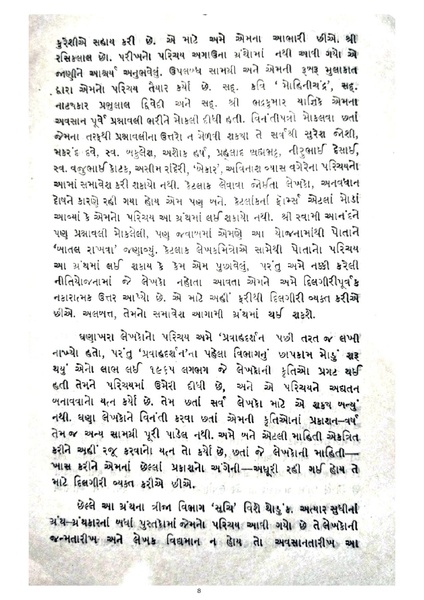 કુરેશીએ સહાય કરી છે. એ માટે અમે એમના આભારી છીએ. શ્રી
રસિકલાલ છો. પરીખનો પરિચય અગાઉના ગ્રંથોમાં નથી આવી ગયો એ
જાણીને આશ્ચર્ય અનુભવેલું. ઉપલબ્ધ સામગ્રી અને એમની રૂબરૂ મુલાકાત
દ્વારા એમનો પરિચય તૈયાર કર્યો છે. સદ્. કવિ ' મોહિનીચંદ્ર', સદ્.
નાટ્યકાર પ્રભુલાલ દ્વિવેદી અને સદ્. શ્રી ભદ્રકુમાર યાજ્ઞિકે એમના
અવસાન પૂર્વે પ્રશ્નાવલી ભરીને મોકલી દીધી હતી. વિનંતીપત્રો મોકલવા છતાં
જેમના તરફથી પ્રશ્નાવલીના ઉત્તરો ન મેળવી શકાયા તે સર્વશ્રી સુરેશ જોશી,
મકરંદ દવે, સ્વ. બકુલેશ, અશોક હર્ષ, પ્રહ્લાદ બ્રહ્મભટ્ટ, નીરુભાઈ દેસાઈ,
સ્વ. વજુભાઈ કોટક, અસીમ રાંદેરી, 'બેકાર', અવિનાશ વ્યાસ વગેરેના પરિચયનો
આમાં સમાવેશ કરી શકાયો નથી. કેટલાક લેવાવા જોઈતા લેખકો, અનવધાન
દોષને કારણે રહી ગયા હોય એમ પણ બને. કેટલાંકનાં ફૉર્મ્સ એટલાં મોડાં
આવ્યાં કે એમનો પરિચય આ ગ્રંથમાં લઈ શકાયો નથી. શ્રી સ્વામી આનંદને
પણ પ્રશ્નાવલી મોકલેલી. પણ જવાબમાં એમણે આ યોજનામાંથી પોતાને
'બાતલ રાખવા' જણાવ્યું. કેટલાક લેખકમિત્રોએ સામેથી પોતાનો પરિચય
આ ગ્રંથમાં લઈ શકાય કે કેમ એમ પુછાવેલું, પરંતુ અમે નક્કી કરેલી
નીતિયોજનામાં જે લેખકો નહોતા આવતા એમને અમે દિલગીરીપૂર્વક
નકારાત્મક ઉત્તર આપ્યો છે. એ માટે અહીં ફરીથી દિલગીરી વ્યક્ત કરીએ
છીએ. અલબત્ત, તેમનો સમાવેશ આગામી ગ્રંથમાં થઈ શકશે.
ઘણાખરા લેખકોનો પરિચય અમે 'પ્રવાહદર્શન પછી તરત જ લખી
નાખ્યો હતો, પરંતુ 'પ્રવાહદર્શન'ના પહેલા વિભાગનું છાપકામ મોડું શરૂ
થયું એનો લાભ લઈ ૧૯૬૫ લગભગ જે લેખકોની કૃતિઓ પ્રગટ થઈ
હતી તેમને પરિચયમાં ઉમેરી દીધી છે, અને એ પરિચયને અદ્યતન
બનાવવાનો યત્ન કર્યો છે. તેમ છતાં સર્વ લેખકો માટે એ શક્ય બન્યું
નથી. ઘણા લેખકોને વિનંતી કરવા છતાં એમની કૃતિઓનાં પ્રકાશન-વર્ષ
તેમ જ અન્ય સામગ્રી પૂરી પાડેલ નથી. અમે બને એટલી માહિતી એકત્રિત
કરીને અહીં રજૂ કરવાનો યત્ન તો કર્યો છે, છતાં જે લેખકોની માહિતી—
ખાસ કરીને એમનાં છેલ્લાં પ્રકાશનો અંગેની—અધૂરી રહી ગઈ હોય તે
માટે દિલગીરી વ્યક્ત કરીએ છીએ.
છેલ્લે આ ગ્રંથના ત્રીજા વિભાગ 'સૂચિ' વિશે થોડુંક. અત્યાર સુધીનાં
ગ્રંથ-ગ્રંથકારનાં બધાં પુસ્તકોમાં જેમનો પરિચય આવી ગયો છે તે લેખકોની
જન્મતારીખ અને લેખક વિદ્યમાન ન હોય તો અવસાનતારીખ આ
8